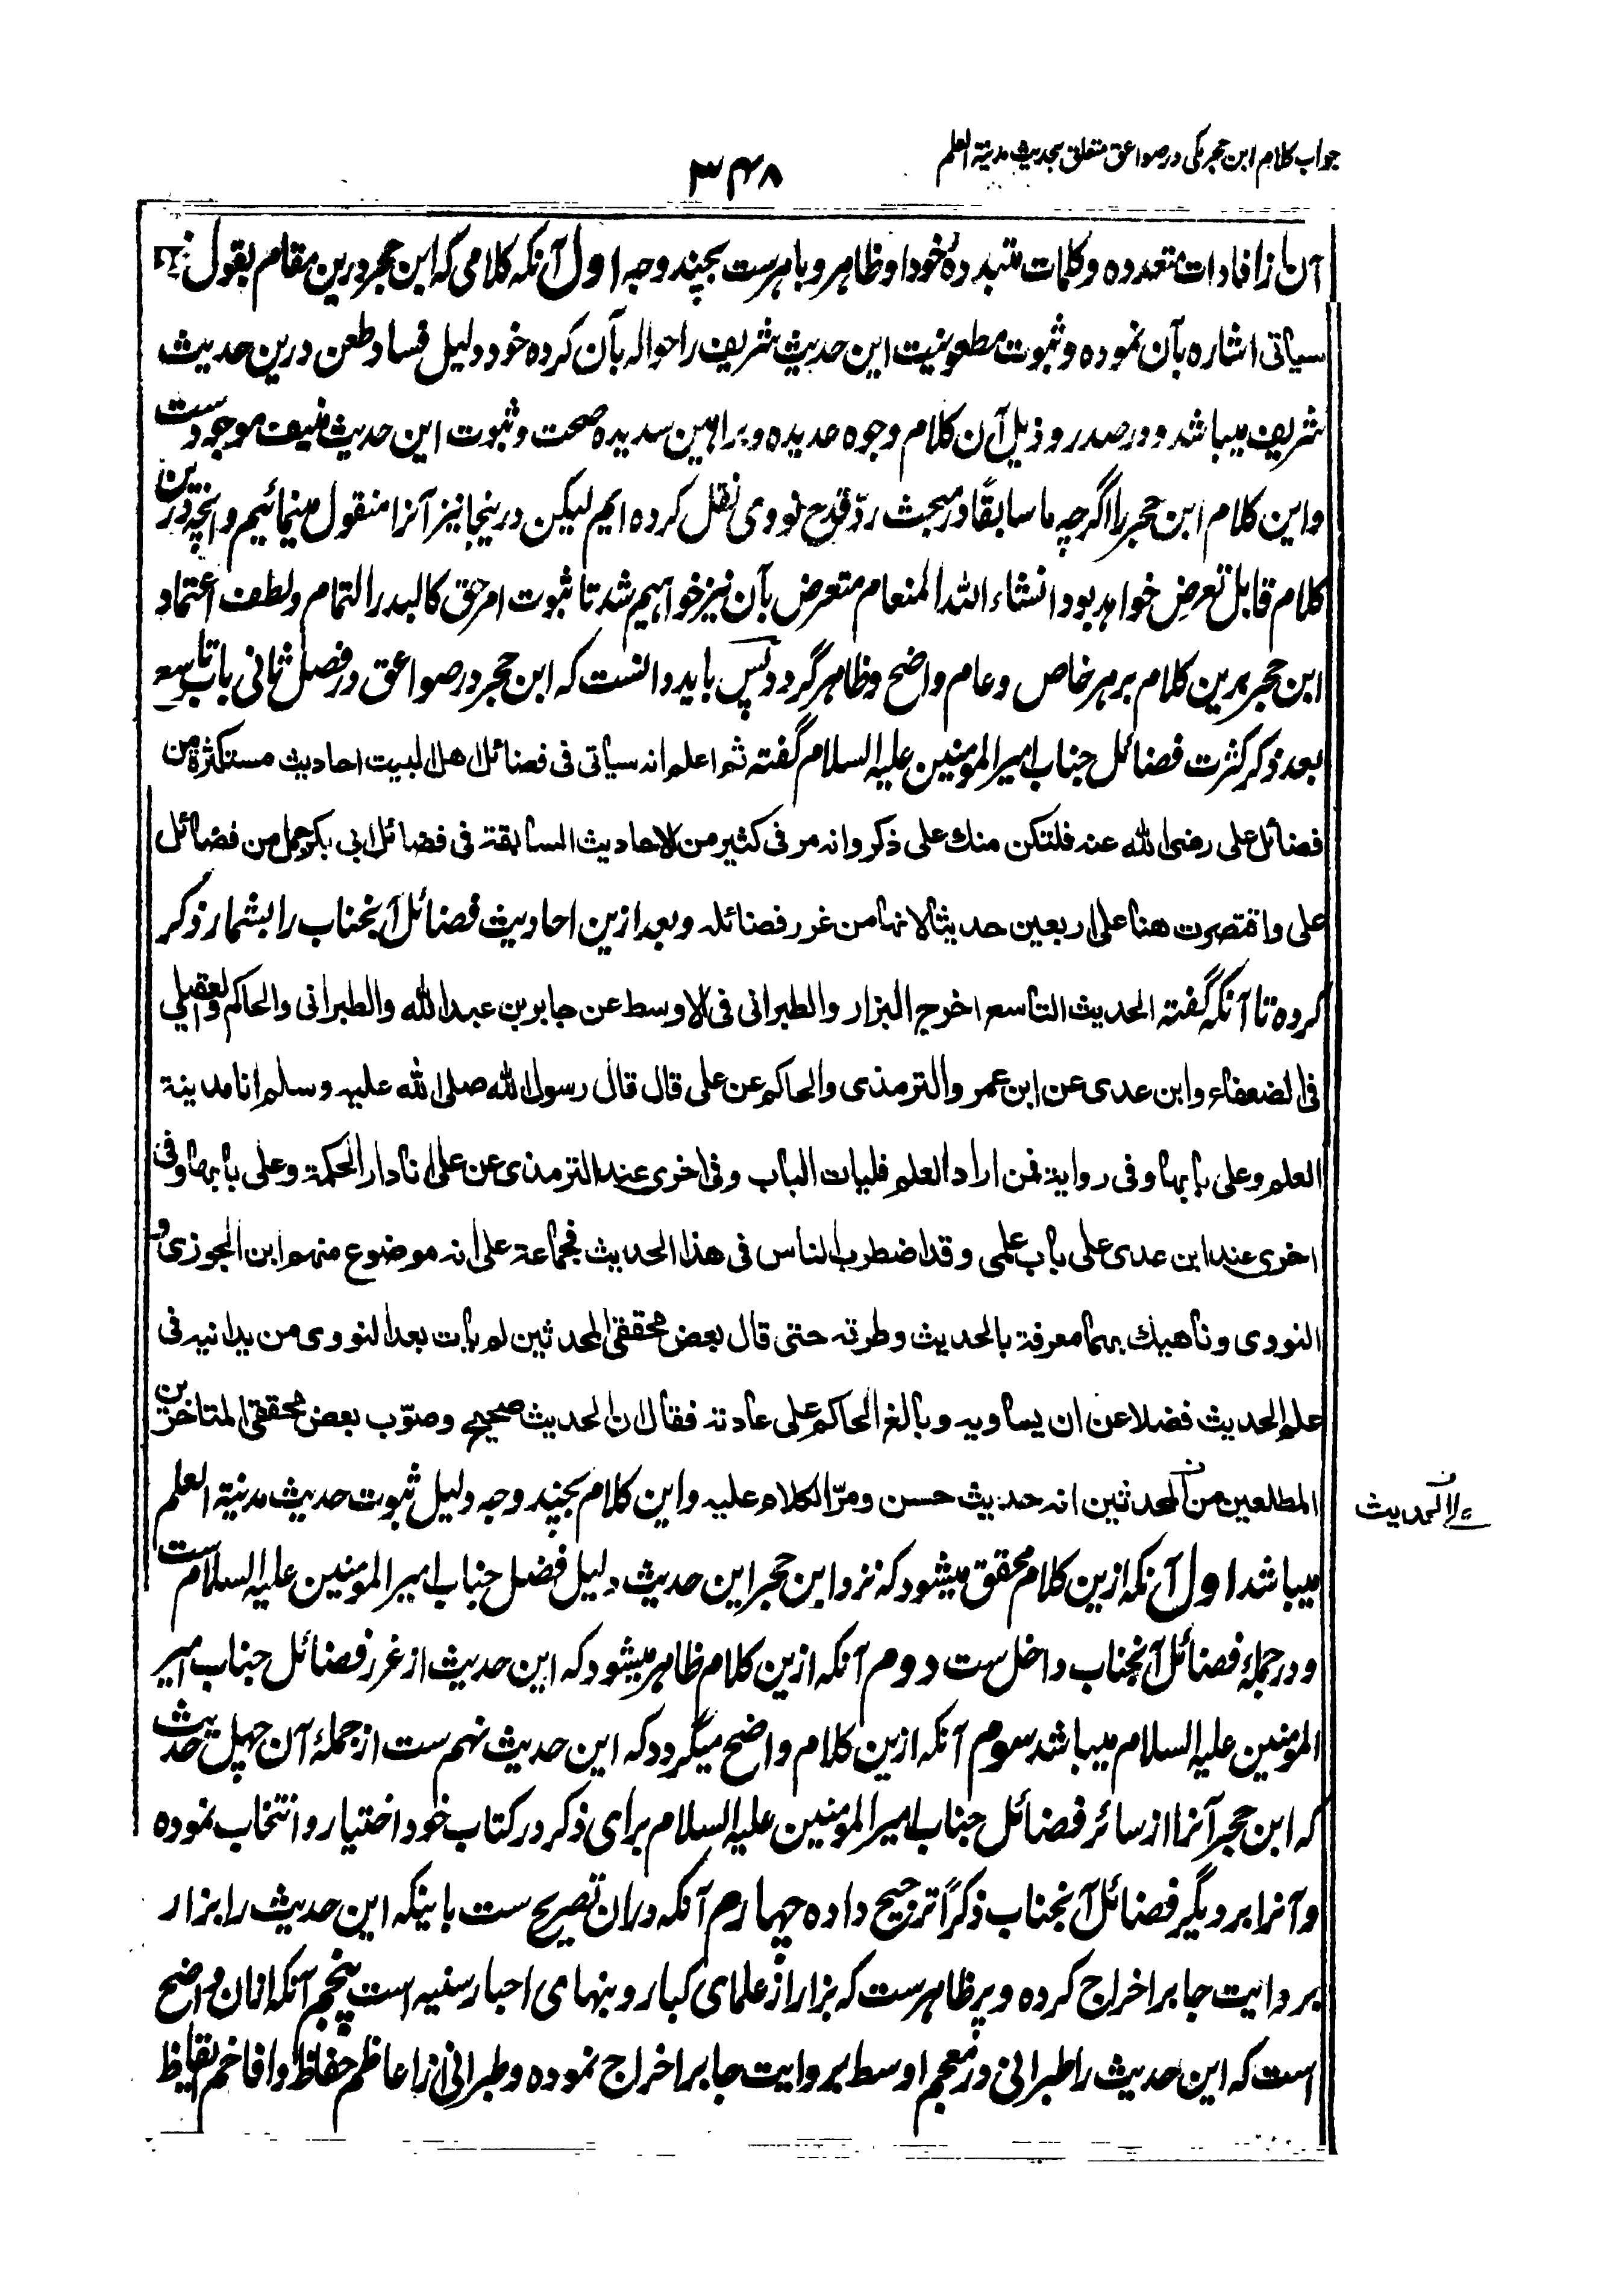 جواب کلام ابن حجر مکی در صواعق متعلق بحدیث مدینة العلم
۳۴۸
آن از افادات متعدده و کلمات متبدده خود او ظاهر و باهرست بچند وجه اول آنکه کلامی که ابن حجر درین مقام بقول
سیاتی اشاره بآن نموده و ثبوت مطعونیت این حدیث شریف را حواله بآن کرده خود دلیل فساد طعن درین حدیث
شریف میباشد و در صدر و ذیل آن کلام وجوه حدیده و براهین سدیده صحت و ثبوت این حدیث منیف موجودست
و این کلام ابن حجر را اگرچه ما سابقًا در مبحث ردّ قدح نووی نقل کرده ایم لیکن درینجا نیز آنرا منقول مینمائیم و آنچه درین
کلام قابل تعرض خواهد بود انشاء الله المنعام متعرض بآن نیز خواهیم شد تا ثبوت امر حق کالبدر التمام و لطف اعتماد
ابن حجر برین کلام بر هر خاص و عام واضح و ظاهر گردد پس باید دانست که ابن حجر در صواعق در فصل ثانی باب تاسع
بعد ذکر کثرت فضائل جناب امیر المومنین علیه السلام گفته ثم اعلم انه سیاتی فی فضائل اهل البیت احادیث مستکثرة من
فضائل علی رضی الله عنه فلتکن منك علی ذکر وانه مر فی کثیر من الاحادیث السابقة فی فضائل ابی بکر جمل من فضائل
علی واقتصرت هنا علی اربعین حدیثا لانها من غرر فضائله و بعد ازین احادیث فضائل آنجناب را بشمار ذکر
کرده تا آنکه گفته الحدیث التاسع اخرج البزار والطبرانی فی الاوسط عن جابر بن عبد الله والطبرانی والحاکم والعقیلی
فی الضعفاء وابن عدی عن ابن عمر والترمذی والحاکم عن علی قال قال رسول الله صلی الله علیه وسلم انا مدینة
العلم وعلی بابها وفی روایة فمن اراد العلم فلیات الباب وفی اخری عند الترمذی عن علی انا دار الحکمة وعلی بابها وفی
اخری عند ابن عدی علی باب علمی وقد اضطرب الناس فی هذا الحدیث فجماعة علی انه موضوع منهم ابن الجوزی و
النووی وناهیك بهما معرفة بالحدیث وطرقه حتی قال بعض محققی المحدثین لم یات بعد النووی من یدانیه فی
علم الحدیث فضلا عن ان یساویه وبالغ الحاکم علی عادته فقال ان الحدیث صحیح وصوّب بعض محققی المتاخرین
المطلعین من المحدثین انه حدیث حسن ومرّ الکلام علیه و این کلام بچند وجه دلیل ثبوت حدیث مدینة العلم
میباشد اول آنکه ازین کلام محقق میشود که نزد ابن حجر این حدیث دلیل فضل جناب امیر المومنین علیه السلام ست
و در جملهٔ فضائل آنجناب داخل ست دوم آنکه ازین کلام ظاهر میشود که این حدیث از غرر فضائل جناب امیر
المومنین علیه السلام میباشد سوم آنکه ازین کلام واضح میگردد که این حدیث نهم ست از جملهٔ آن چهل حدیث
که ابن حجر آنرا از سائر فضائل جناب امیر المومنین علیه السلام برای ذکر در کتاب خود اختیار و انتخاب نموده
و آنرا بر دیگر فضائل آنجناب ذکرًا ترجیح داده چهارم آنکه دران تصریح ست باینکه این حدیث را بزار
بروایت جابر اخراج کرده و پر ظاهرست که بزار از علمای کبار و نبهای احبار سنیه است پنجم آنکه ازان واضح
است که این حدیث را طبرانی در معجم اوسط بروایت جابر اخراج نموده و طبرانی از اعاظم حفاظ و افاخم ایقاظ
الحدیث